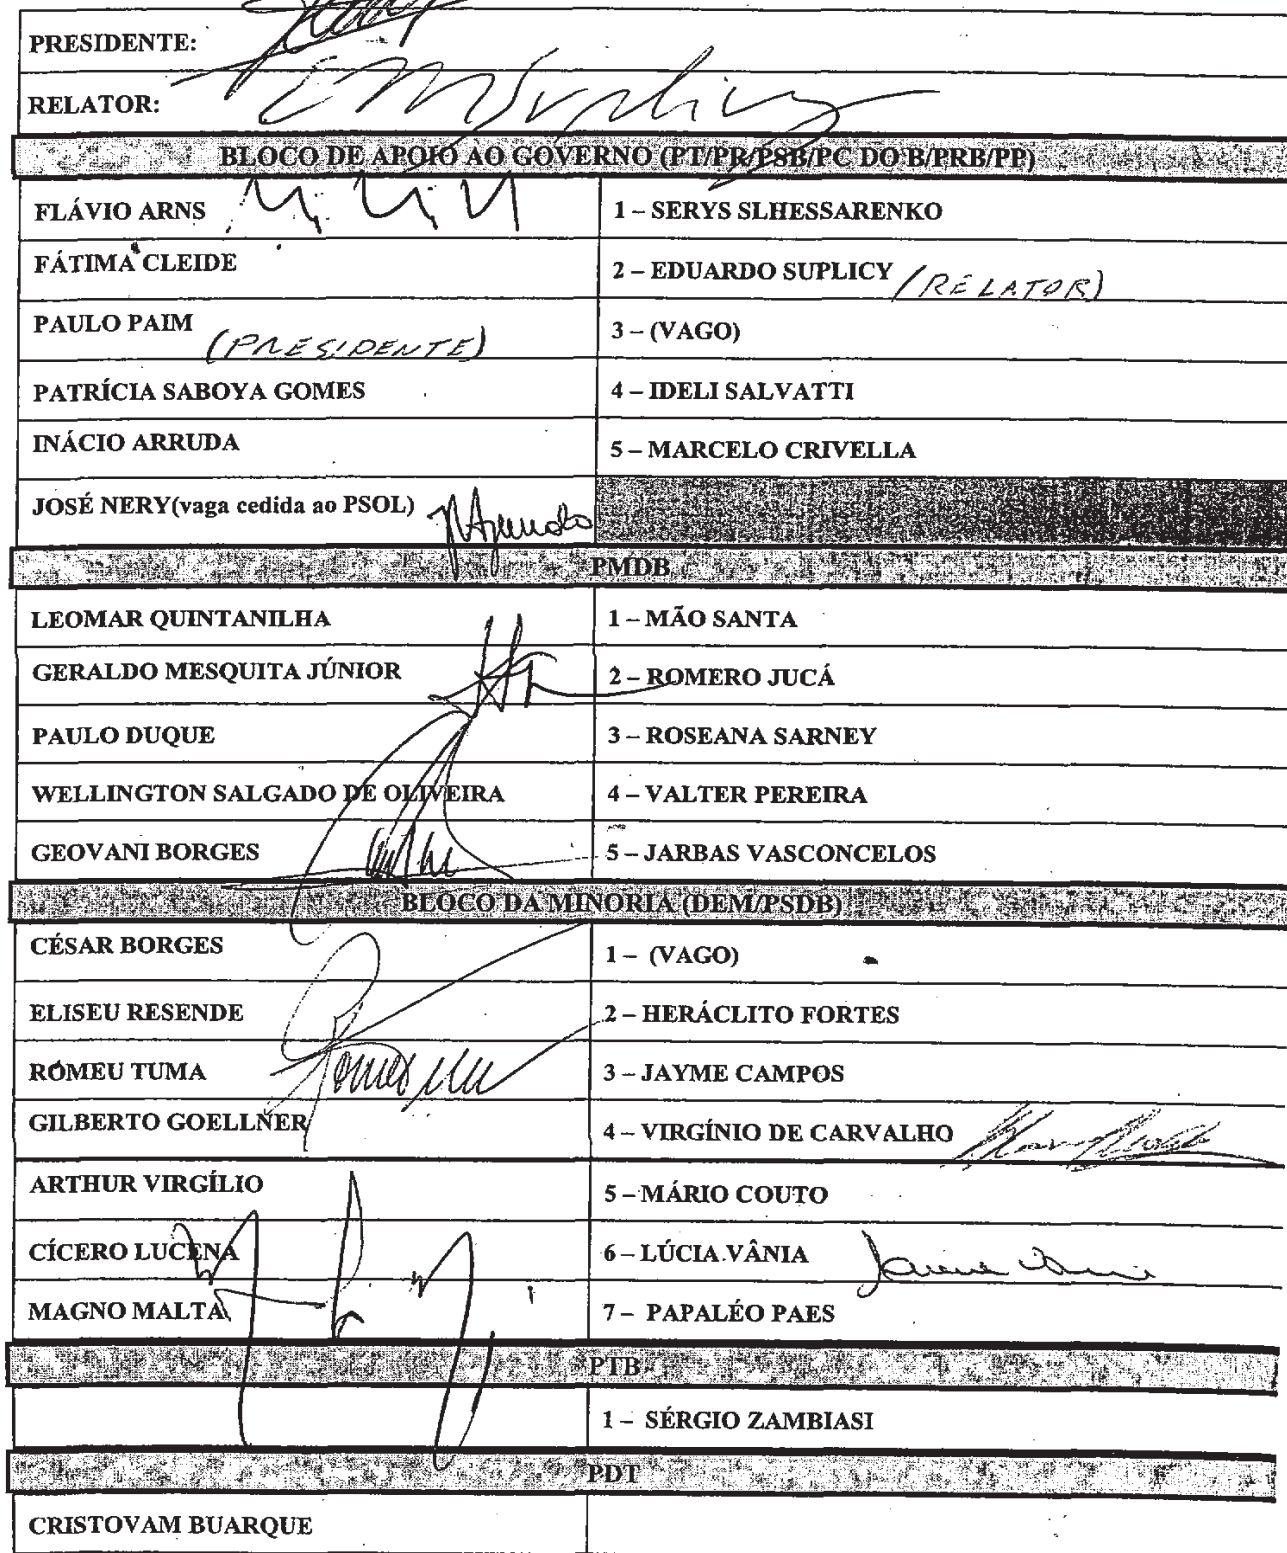 PRESIDENTE:
RELATOR: EMSuplicy
BLOCO DE APOIO AO GOVERNO (PT/PR/PSB/PC DO B/PRB/PP)
FLÁVIO ARNS 1 – SERYS SLHESSARENKO
FÁTIMA CLEIDE 2 – EDUARDO SUPLICY (RELATOR)
PAULO PAIM (PRESIDENTE) 3 – (VAGO)
PATRÍCIA SABOYA GOMES 4 – IDELI SALVATTI
INÁCIO ARRUDA 5 – MARCELO CRIVELLA
JOSÉ NERY(vaga cedida ao PSOL)
PMDB
LEOMAR QUINTANILHA 1 – MÃO SANTA
GERALDO MESQUITA JÚNIOR 2 – ROMERO JUCÁ
PAULO DUQUE 3 – ROSEANA SARNEY
WELLINGTON SALGADO DE OLIVEIRA 4 – VALTER PEREIRA
GEOVANI BORGES 5 – JARBAS VASCONCELOS
BLOCO DA MINORIA (DEM/PSDB)
CÉSAR BORGES 1 – (VAGO)
ELISEU RESENDE 2 – HERÁCLITO FORTES
ROMEU TUMA 3 – JAYME CAMPOS
GILBERTO GOELLNER 4 – VIRGÍNIO DE CARVALHO
ARTHUR VIRGÍLIO 5 – MÁRIO COUTO
CÍCERO LUCENA 6 – LÚCIA VÂNIA
MAGNO MALTA 7 – PAPALÉO PAES
PTB
1 – SÉRGIO ZAMBIASI
PDT
CRISTOVAM BUARQUE